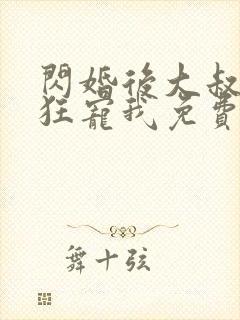 閃婚後大叔
狂寵我免費
舞十弦